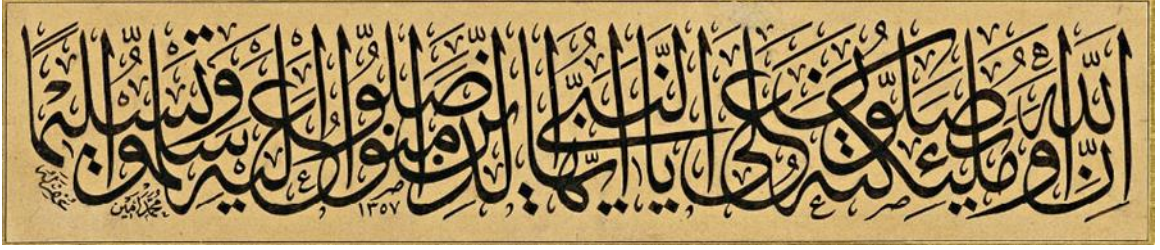 إِنَّ اللهَ وَمَلٰئِكَتَهُ يُصَلُّونَ عَلَى النَّبِيِّ يَا أَيُّهَا الَّذِينَ آمَنُوا صَلُّوا عَلَيْهِ وَسَلِّمُوا تَسْلِيمًا
١٣٥٧
محمد أمين